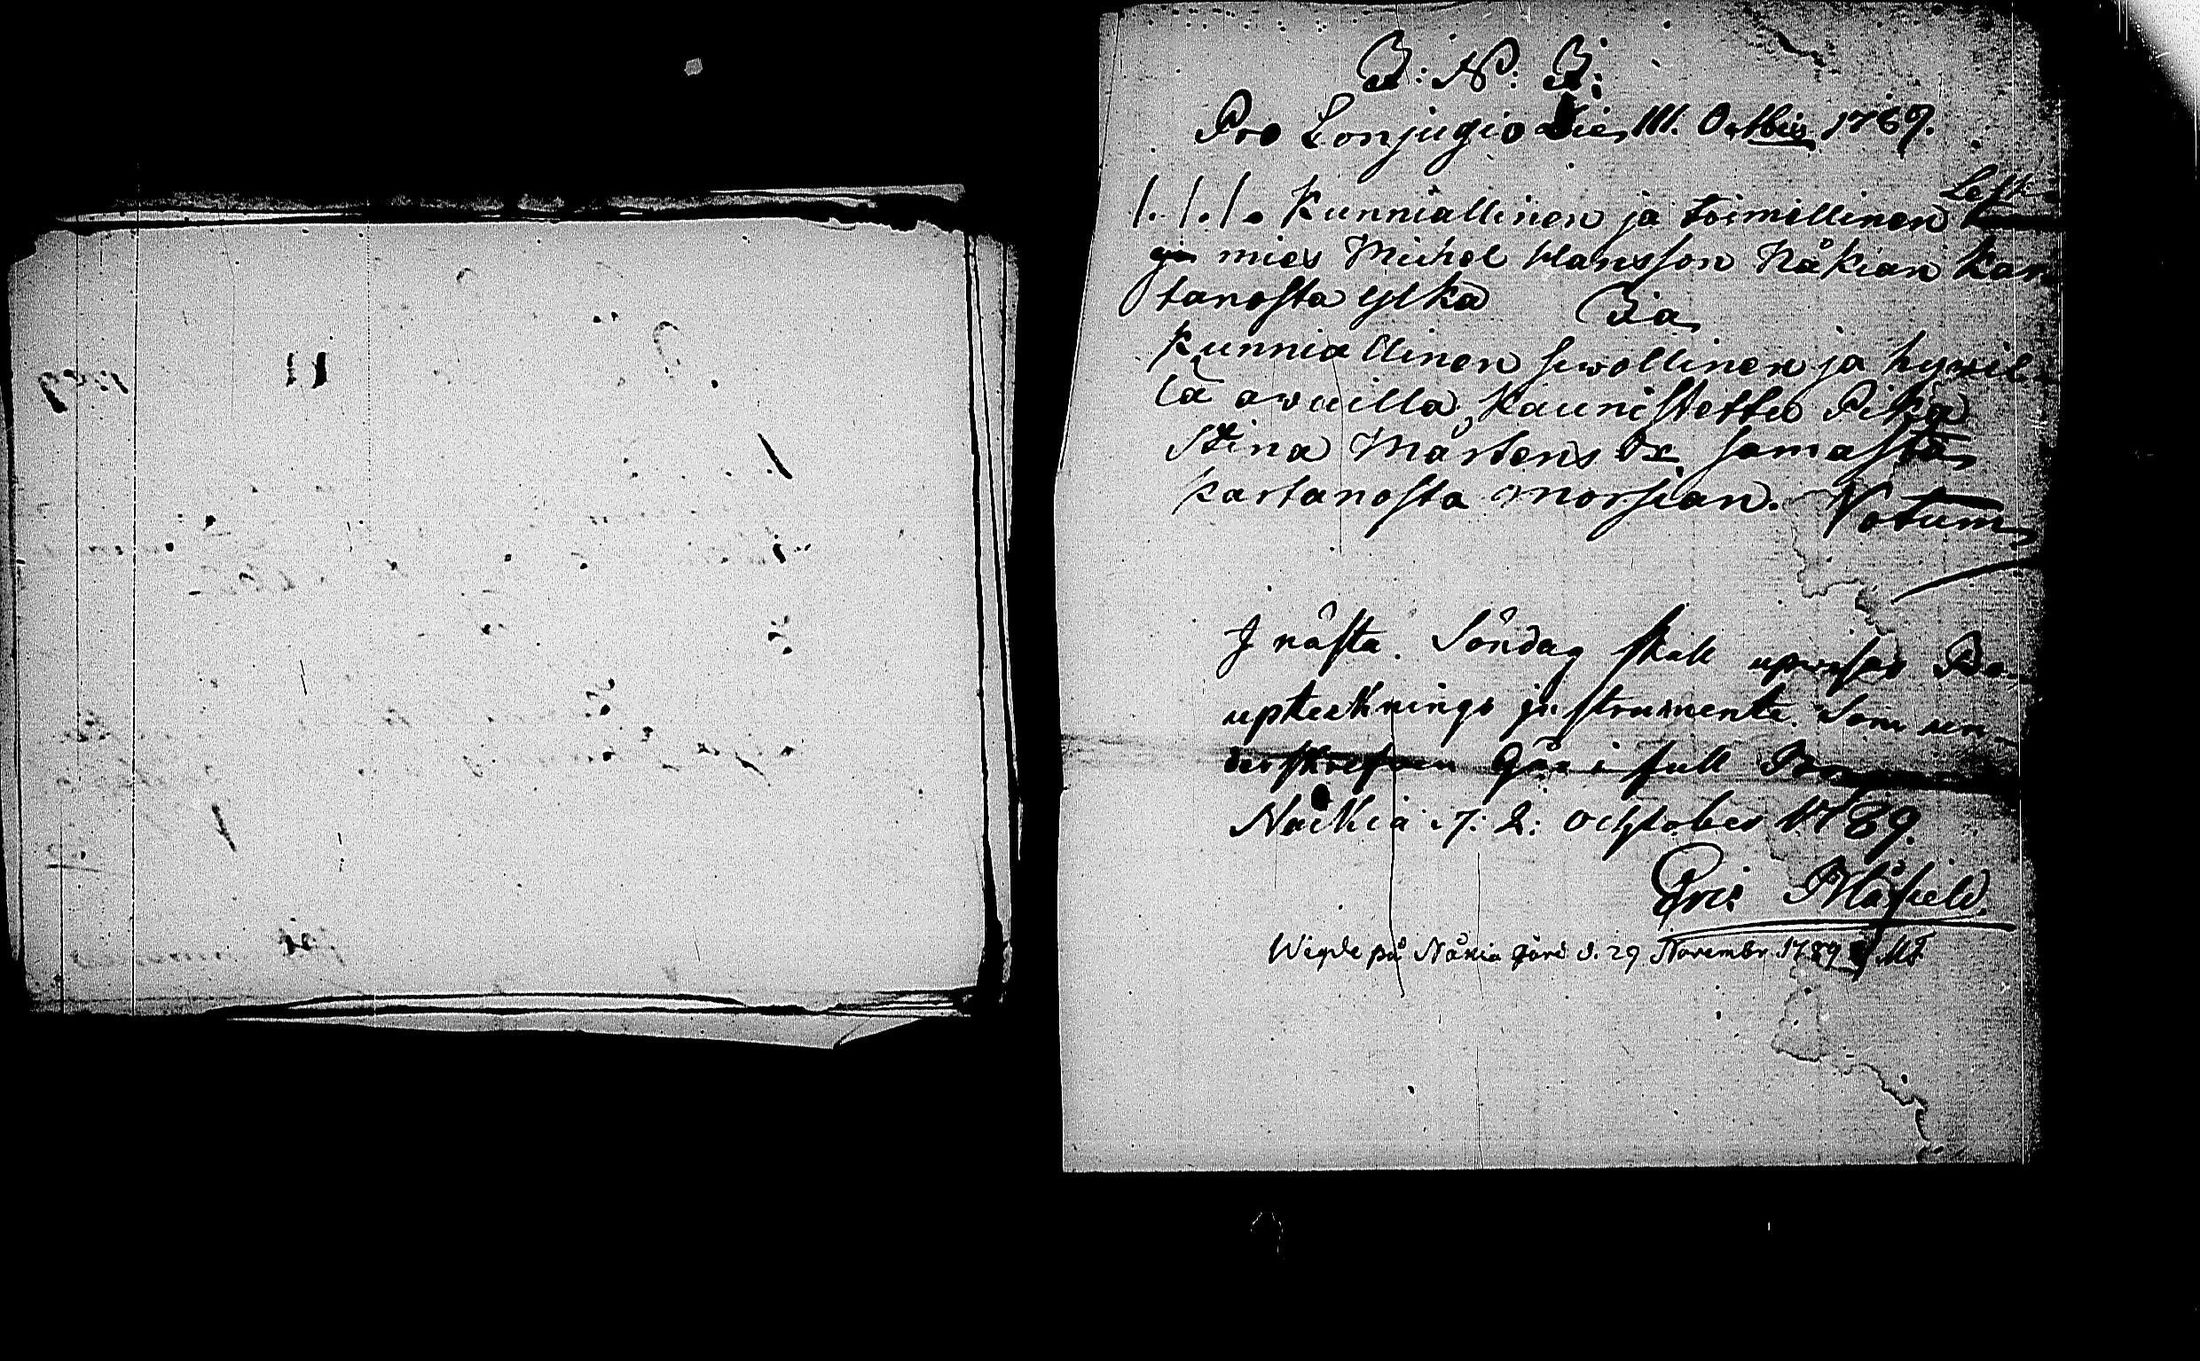 J: N: J:
Pro Conjugio Die III. Octbris 1789.
/. /. /. Kunniallinen ja toimellinen Lesk
mies Michel Hansson Näkiän Kar
tanosta ylkä Ja
Kunniallinen siwollinen ja hywil
lä awuilla kaunistettu Pika
Stina Mårtens Dr. samasta
kartanosta morsian. Votum
I nästa Söndag skall upwisas Bo
upteknings instrumente Som un-
derskrefwen Går i full Borgen
Näckia d. 2: October 1789.
Eric Blåfield.
Wigde på Näkia gård d. 29 Novembr 1789 MF